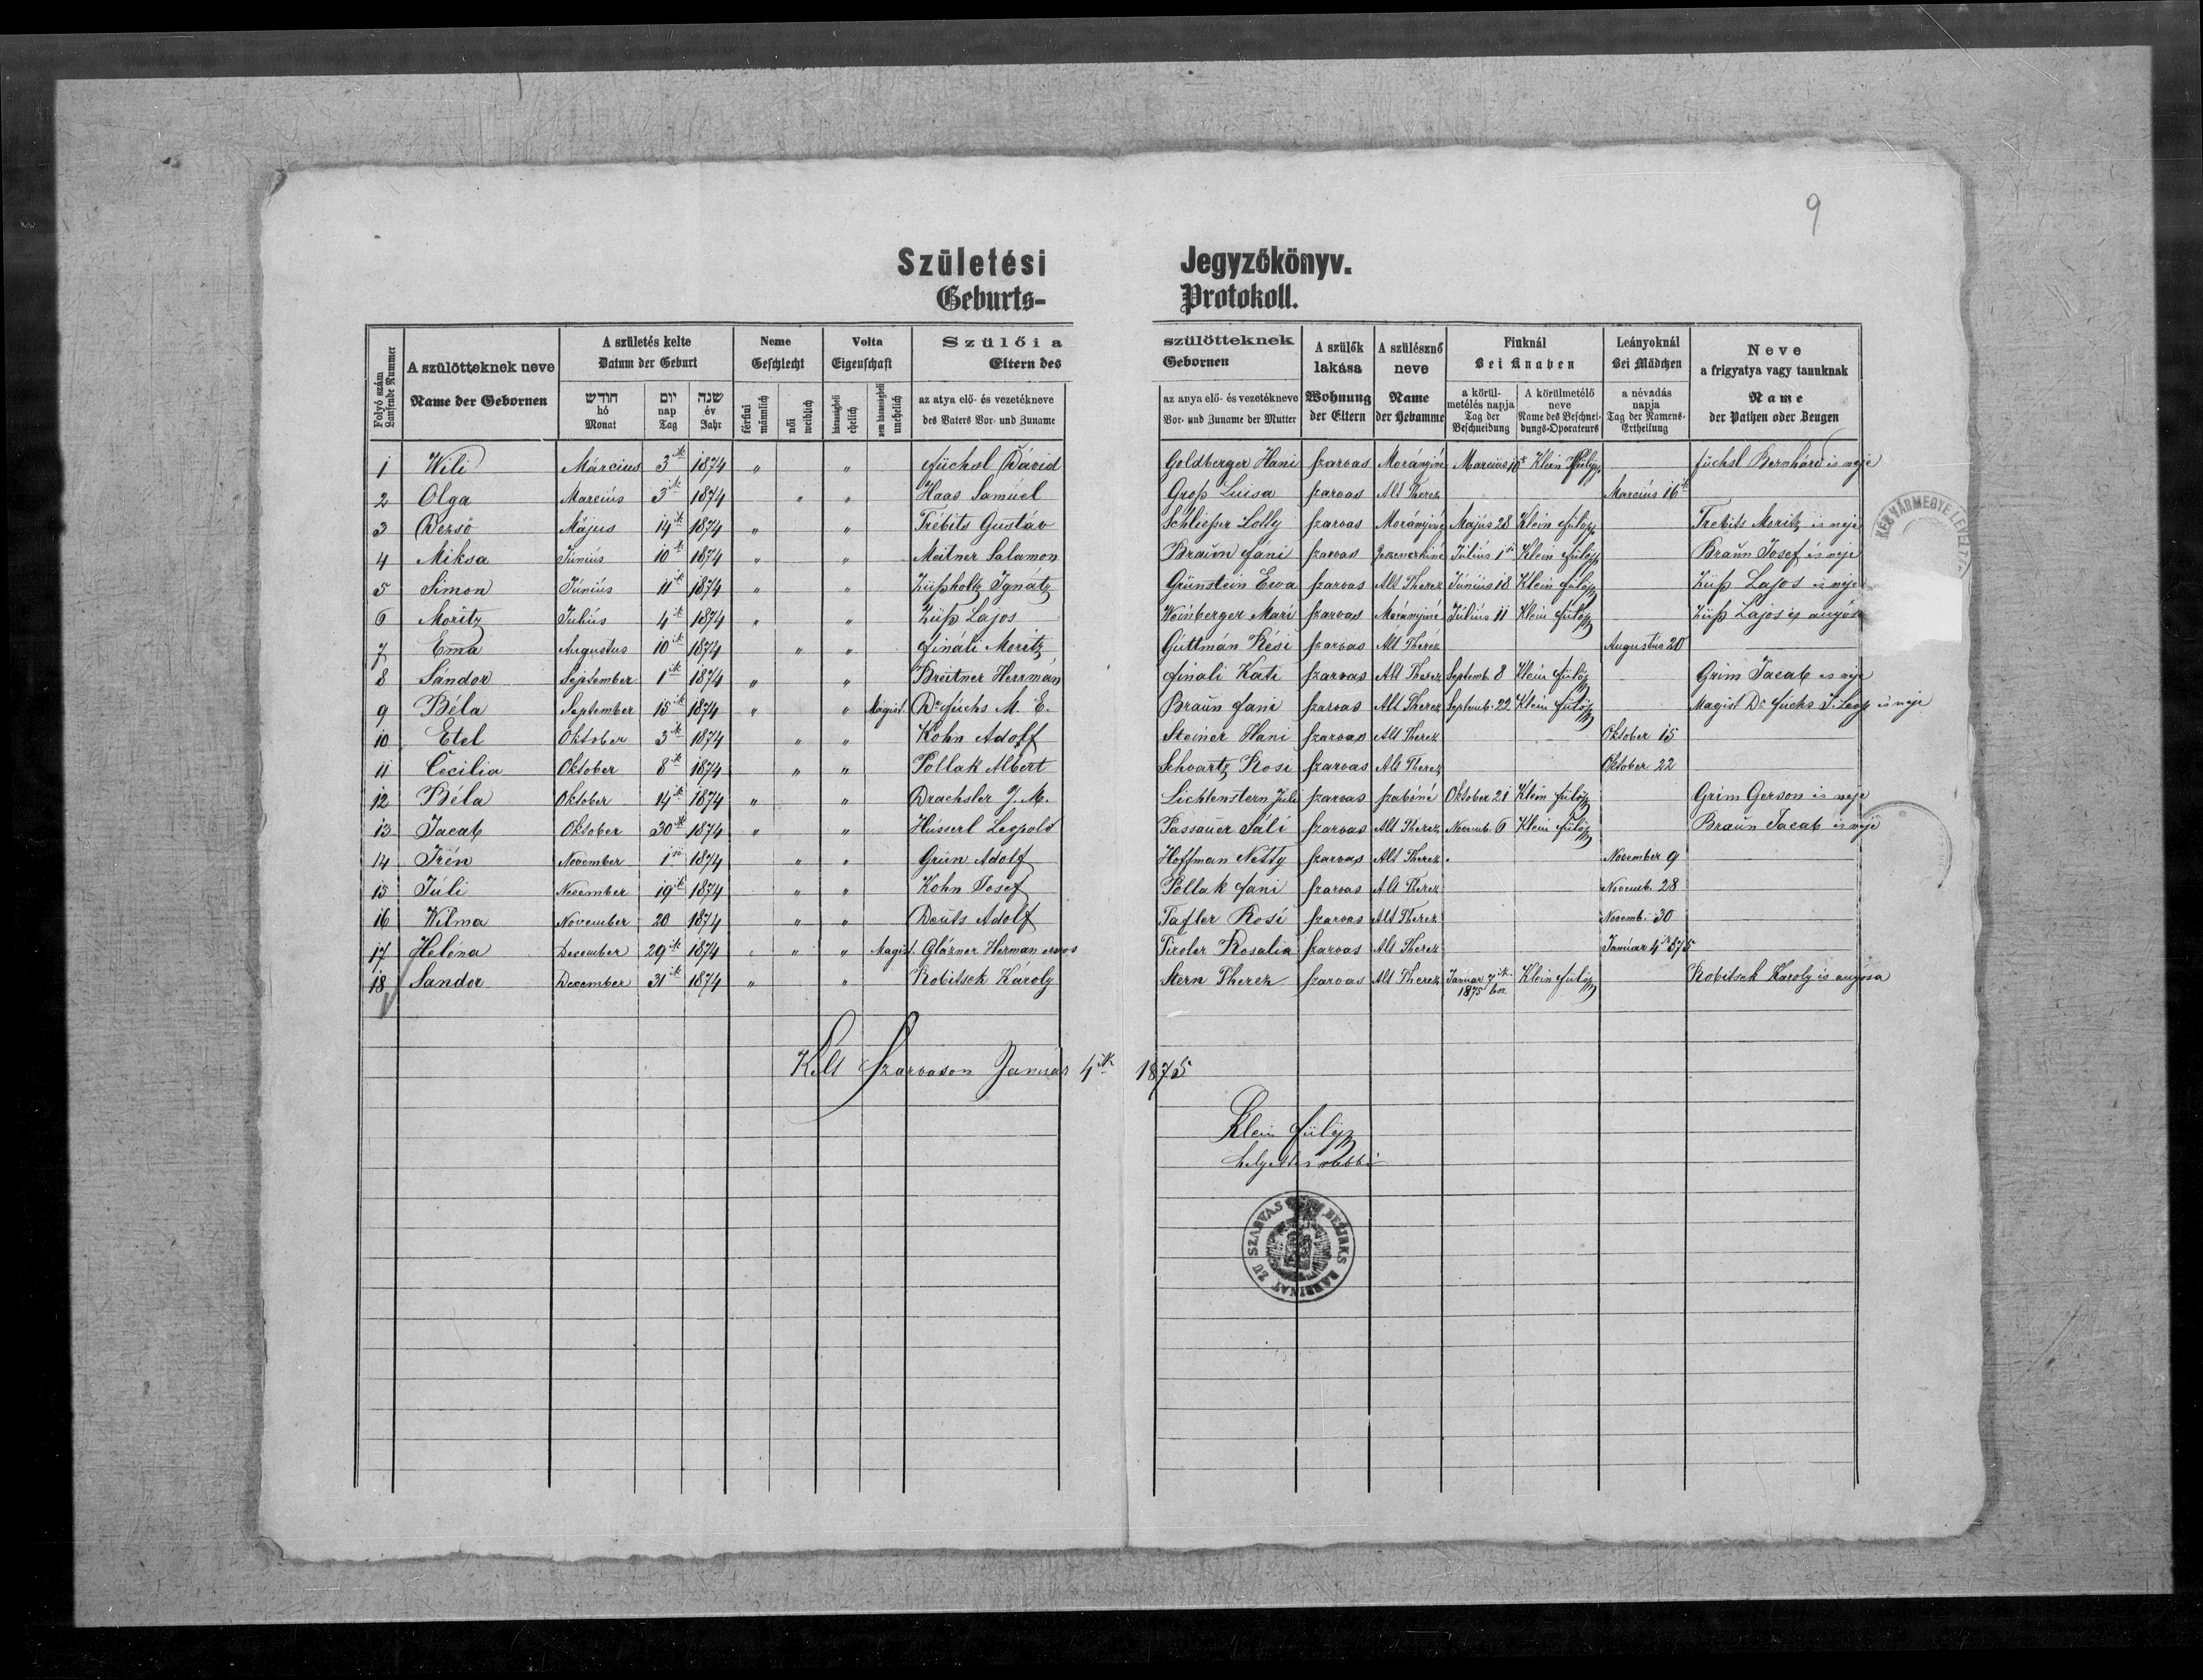 9
Születési Jegyzőkönyv.
Geburts- Protokoll.
Folyó szám Laufende Nummer
A szülötteknek neve Name der Gebornen
A születés kelte Datum der Geburt
חודש hó Monat
יום nap Tag
שנה év Jahr
Neme Geschlecht
férfiui männlich
női weiblich
Volta Eigenschaft
házasságbeli ehelich
nem házasságbeli unehelich
Szülői a szülötteknek
Eltern des Gebornen
az atya elő- és vezetékneve des Vaters Vor- und Zuname
az anya elő- és vezetékneve Vor- und Zuname der Mutter
A szülők lakása Wohnung der Eltern
A szülésznő neve Name der Hebamme
Fiuknál Bei Knaben
a körülmetélés napja Tag der Beschneidung
A körülmetélő neve Name des Beschneidungs-Operateurs
Leányoknál Bei Mädchen
a névadás napja Tag der Namens-Ertheilung
Neve a frigyatya vagy tanuknak Name der Pathen oder Zeugen
1 Wili Március 3ik 1874 " " Füchsl Dávid Goldberger Hani Szarvas Morányiné Március 10k Klein Fülöp Füchsl Bernhárd és neje
2 Olga Március 3ik 1874 " " Haas Samuel Groß Luisa Szarvas Alt Therez Március 16ik
3 Dezsö Május 14ik 1874 " " Trebits Gustáv Schließer Lolly Szarvas Morányiné Május 28 Klein Fülöp Trebits Moritz és neje
4 Miksa Június 10ik 1874 " " Meitner Salamon Braun Fani Szarvas Július 1ső Klein Fülöp Braun Josef és neje
5 Simon Június 11ik 1874 " " Züßholtz Ignátz Grünstein Eva Szarvas Alt Therez Június 18 Klein Fülöp Züß Lajos és neje
6 Moritz Július 4ik 1874 " " Züß Lajos Weinberger Mari Szarvas Morányiné Július 11 Klein Fülöp Züß Lajos és anyósa
7 Ema Augustus 10ik 1874 " " Fináli Moritz Guttmán Rési Szarvas Alt Therez Augustus 20
8 Sándor September 1ik 1874 " " Breitner Herrmán Finali Kati Szarvas Alt Therez Septemb. 8 Klein Fülöp Grim Jacab és neje
9 Béla September 15ik 1874 " " Magist. Dr Fuchs M. E. Braun Fani Szarvas Alt Therez Septemb. 22 Klein Fülöp Magist Dr Fuchs és neje
10 Etel Oktober 3ik 1874 " " Kohn Adolf Steiner Hani Szarvas Alt Therez Oktober 15
11 Cecilia Oktober 8ik 1874 " " Pollak Albert Schvartz Rosi Szarvas Alt Therez Oktober 22
12 Béla Oktober 14ik 1874 " " Drachsler J. M. Lichtenstern Juli Szarvas Szabóné Oktober 21 Klein Fülöp Grim Gerson és neje
13 Jacab Oktober 30ik 1874 " " Husserl Leopold Passauer Sáli Szarvas Alt Therez Novemb. 6 Klein Fülöp Braun Jacab és neje
14 Irén November 1ső 1874 " " Grün Adolf Hoffman Netty Szarvas Alt Therez November 9
15 Júli November 19ik 1874 " " Kohn Josef Pollak Fani Szarvas Alt Therez Novemb. 28
16 Wilma November 20 1874 " " Deuts Adolf Tafler Rosi Szarvas Alt Therez Novemb. 30
17 Helena December 29ik 1874 " " Magist. Glázner Herman orvos Tiroler Rosalia Szarvas Alt Therez Január 4ik 875
18 Sandor December 31ik 1874 " " Robitsek Károly Stern Therez Szarvas Alt Therez Január 7ik 1875 Klein Fülöp Robitsek Karoly és anyósa
Kelt Szarvason Január 4ik 1875
Klein Fülöp
helyettes rabbi
BEZIRKS RABBINAT ZU SZARVAS